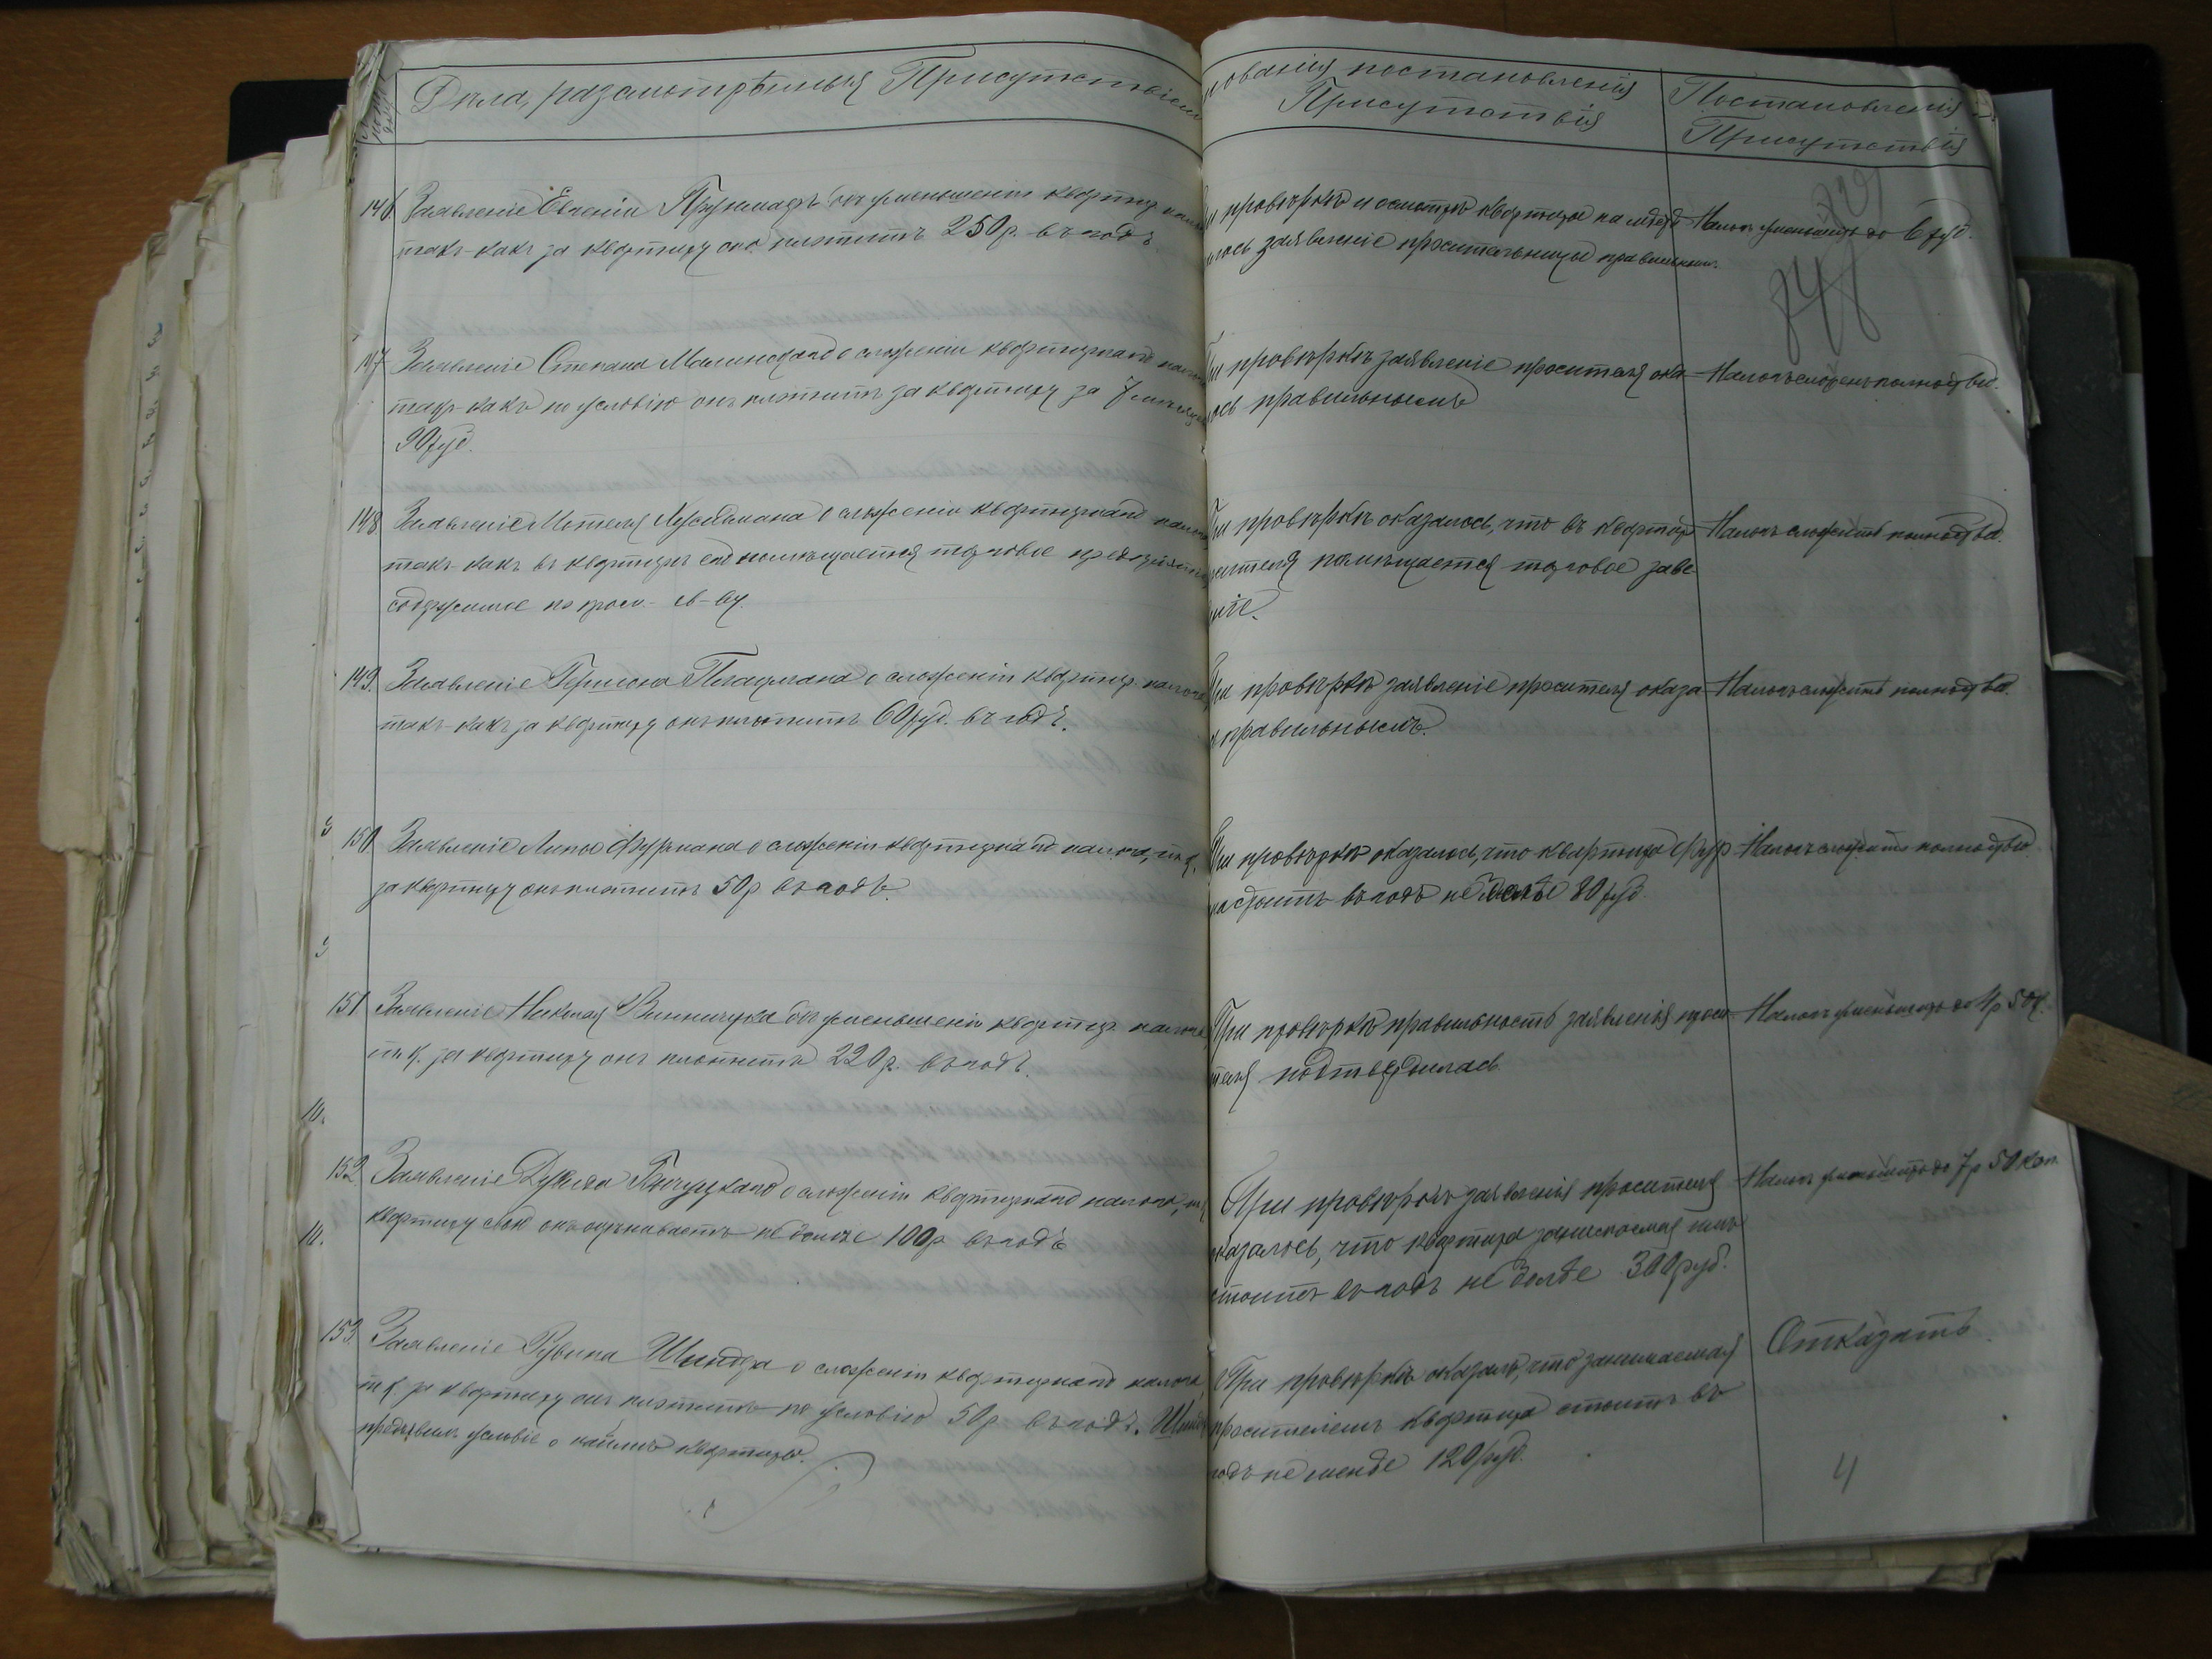 Дѣла, разсмотрѣнныя Присутствіем
нованія постановленія
Присутствія
Постановленія
Присутствія
146 Заявленіе Евгеніи объ уменьшеніи квартир. нало
такъ-какъ за квартиру она платитъ 250 р. въ годъ.
и провѣркѣ и осмотрѣ квартиры на мѣстѣ
лось заявленіе просительницы правильным.
Налогъ уменьшить до 6 руб.
147 Заявленіе Степана о сложеніи квартирнаго налога
такъ-какъ по условію онъ платитъ за квартиру за 7
90 руб.
ри провѣркѣ заявленіе просителя ока
лось правильнымъ
Налогъ сложить полностью.
148 Заявленіе Мотеля о сложеніи квартирнаго налога
такъ-какъ въ квартирѣ его помѣщается торговое предпріятіе
содержимое по пром. св-ву.
ри провѣркѣ оказалось, что въ квартирѣ
сителя помѣщается торговое заве
ніе.
Налогъ сложить полностью.
149. Заявленіе Гершона о сложеніи квартир. налога
такъ-какъ за квартиру онъ платитъ 60 руб. въ годъ.
ри провѣркѣ заявленіе просителя оказа
ь правильнымъ.
Налогъ сложить полностью.
150 Заявленіе Липы Фурмана о сложеніи квартирнаго налога, т.к.
за квартиру онъ платитъ 50 р. въ годъ.
ри провѣркѣ оказалось, что квартира Фур
на стоитъ въ годъ не болѣе 80 руб.
Налогъ сложить полностью
151 Заявленіе Николая Винничука объ уменьшеніи квартир. налога,
т.к. за квартиру онъ платитъ 220 р. въ годъ.
При провѣркѣ правильность заявленія проси
теля подтвердилась
Налогъ уменьшить до 4 р. 50 к.
10.
152 Заявленіе о сложеніи квартирнаго налога, т.к.
квартиру свою онъ оцѣниваетъ не болѣе 100 р. въ годъ
При провѣркѣ заявленія просителя
оказалось, что квартира занимаемая имъ
стоитъ въ годъ не болѣе 300 руб.
Налогъ уменьшить до 7 р. 50 коп.
10.
153. Заявленіе Рувина Шнидера о сложеніи квартирнаго налога,
т.к. за квартиру онъ платитъ по условію 50 р. въ годъ.
предъявилъ условіе о наймѣ квартиры.
При провѣркѣ оказалось, что занимаемая
просителемъ квартира стоитъ въ
годъ не менѣе 120 руб.
Отказать.
4